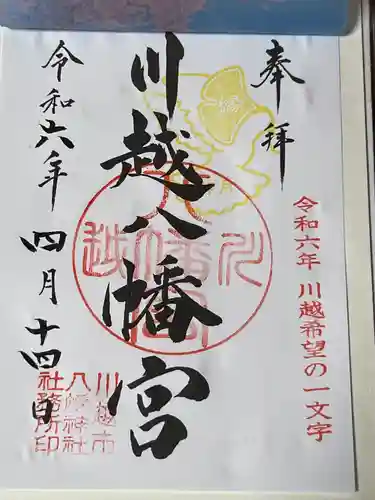 奉拝
令和六年 川越希望の一文字
川越八幡宮
川越八幡宮
令和六年 四月十四日
川越市
八幡神社
社務所印